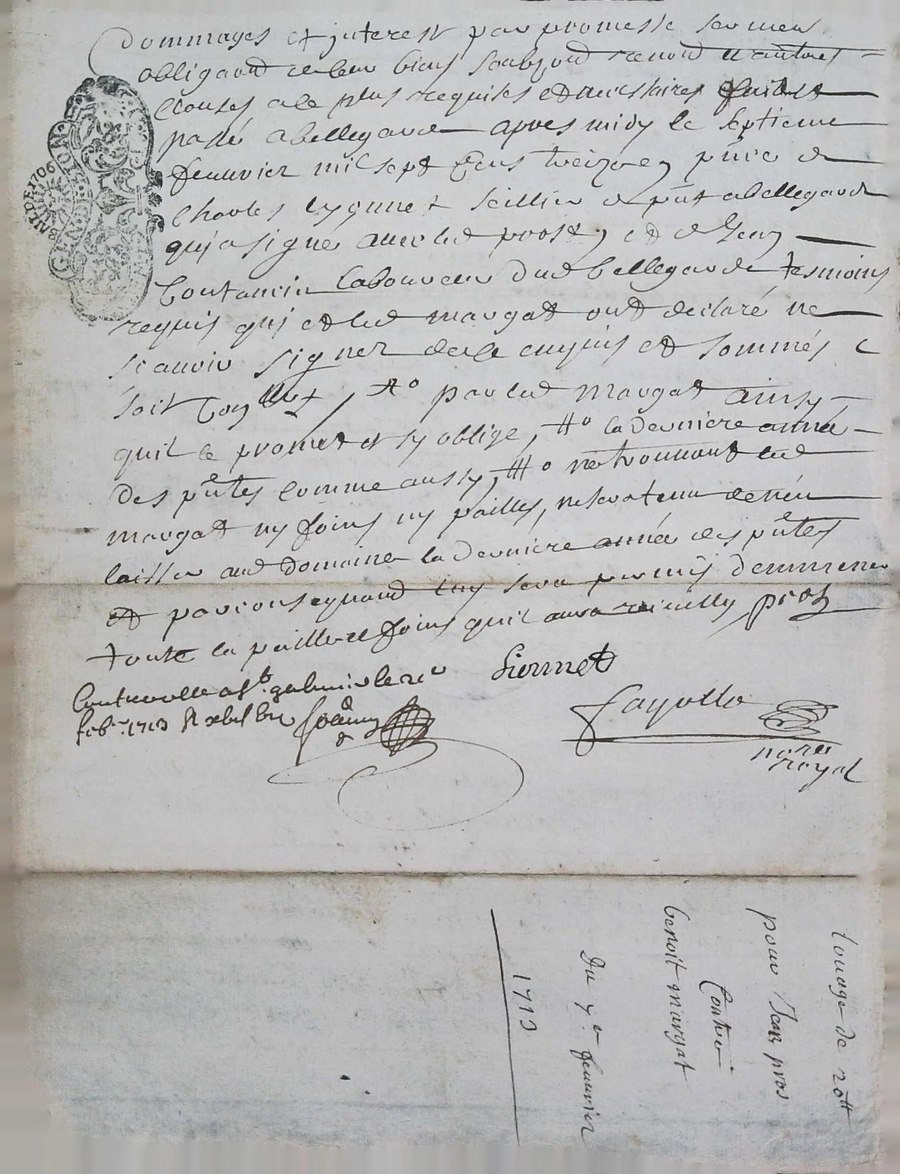 Dommages et interest par promesse serment
obligaond de leur biens soubzond renond et autres
clauses a ce plus requises et necessaires fait et
passé a bellegarde apres midy le septieme
feuvrier mil sept cens treize, pñce de
Charles lyonnet seillier d pñt a bellegarde
qui a signe avec led pros et de Jean
Coutancin laboureur dud bellegarde tesmoins
requis qui et led margat ont declaré ne
scavoir signer de ce enquis et sommés
soit Con^lle / #° par led margat ainsy
quil le promet et sy oblige, ##° la derniere année
des pñtes comme aussy, ###° ne trouvant led
margat ny foins ny pailles, ne sera tenu den
laisser aud domaine la derniere année des pñtes
et par consequand luy sera permis demmener
toute la paille et foins quil aura receuilly pros
Lionnet
Controlle a St. galmier le
feb. 1713 R
Fayolle
no.re
royal
GEN DE LION
louage de 20tt
pour Jean pros
Contre
benoit margat
Du 7e feuvrier
1713